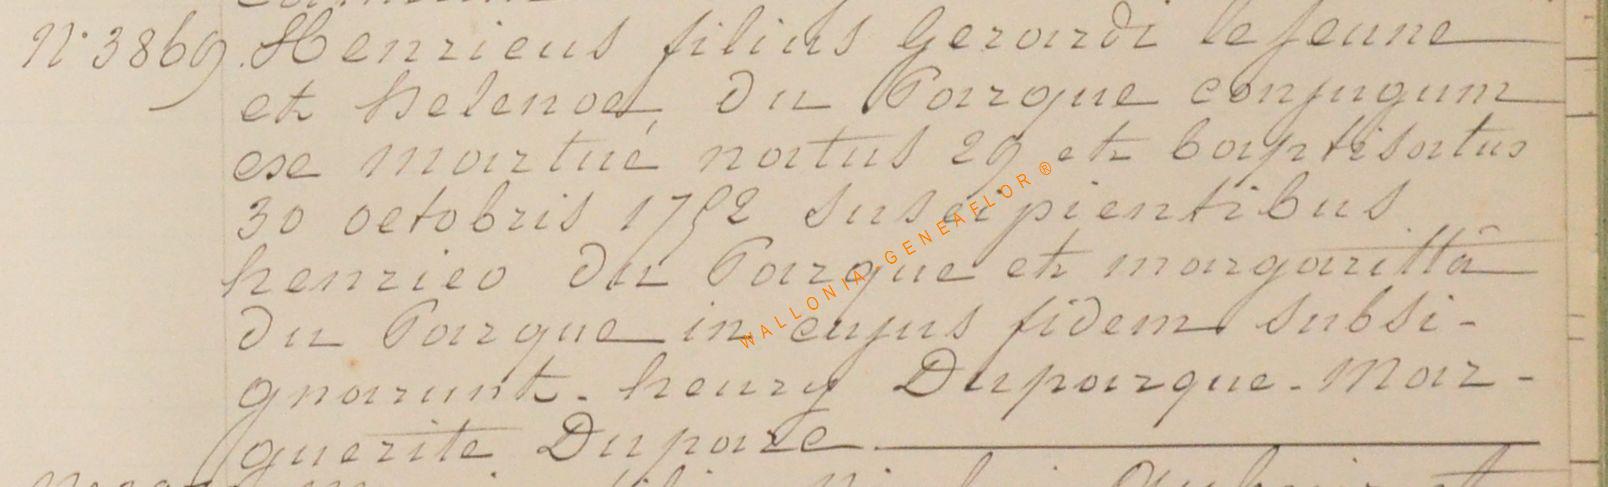 N° 3869. Henricus filius Gerardi le jeune
et helenoe, du Parque conjugum
ex martué natus 29 et baptisatus
30 octobris 1752 suscipientibus
henrico du Parque et margarittâ
du Parque in cujus fidem subsi-
gnarunt. henry Duparque. Mar-
guerite Duparc
WALLONIA GENEAFLOR ®